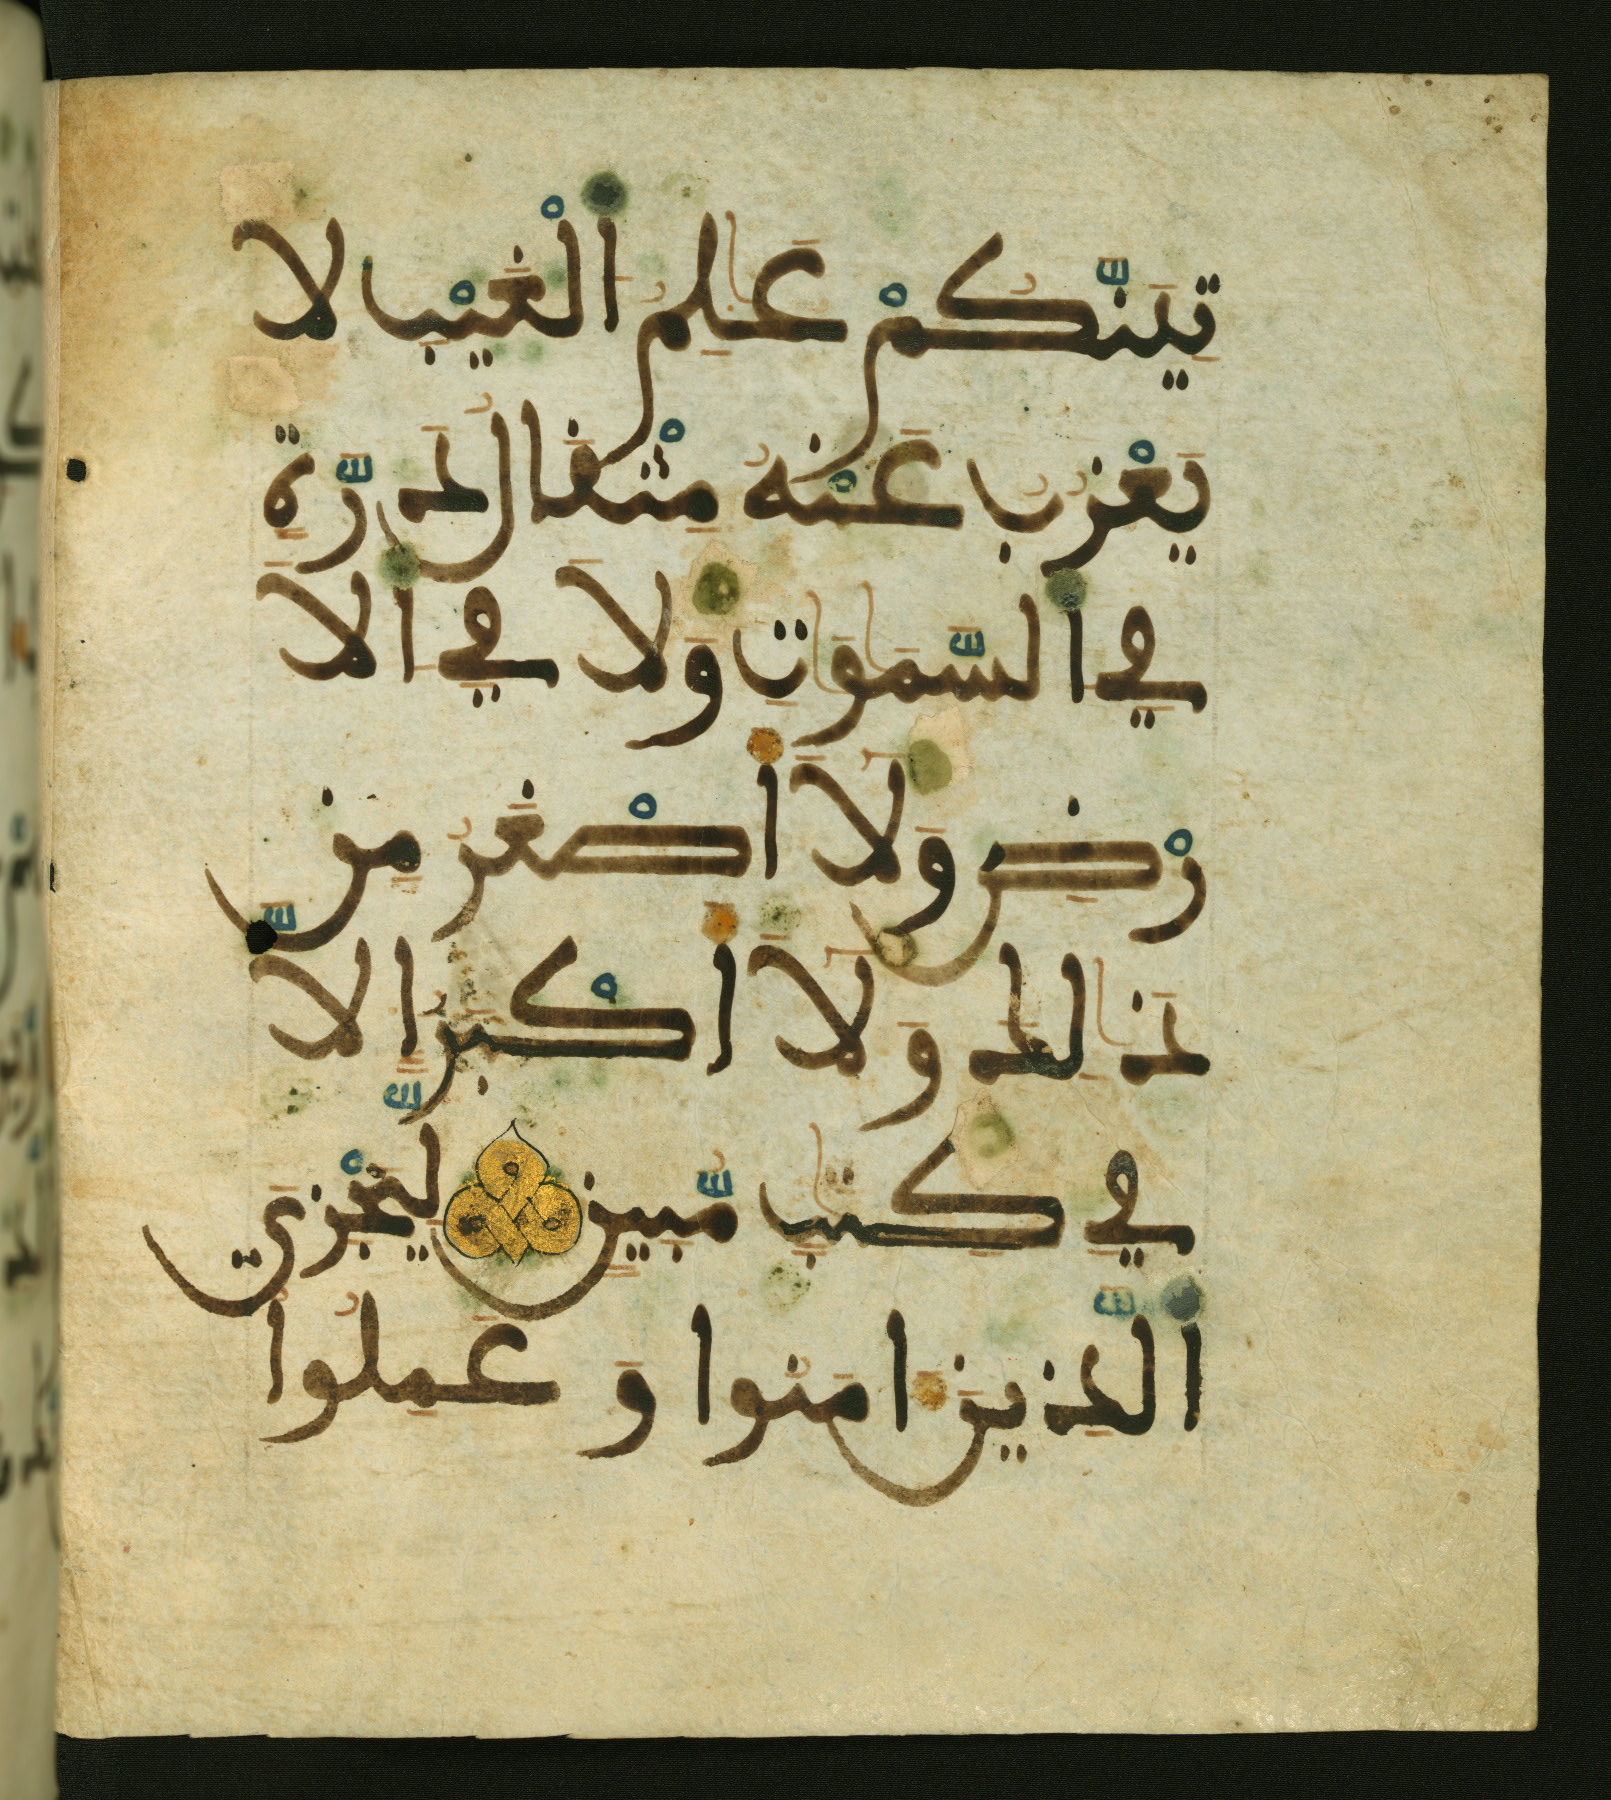 تِيَنَّكُمْ عَٰلِمُ اَ۬لْغَيْبِ لَا
يَعْزُبُ عَنْهُ مِثْقَالُ ذَرَّةٍ
فِي اِ۬لسَّمَٰوَٰتِ وَلَا فِي اِ۬لَا
رْضِ وَلَآ أَصْغَرُ مِن
ذَٰلِكَ وَلَآ أَكْبَرُ إِلَّا
فِي كِتَٰبٖ مُّبِينٖ لِّيَجْزِيَ
اَ۬لذِينَ ءَامَنُوا وَعَمِلُوا